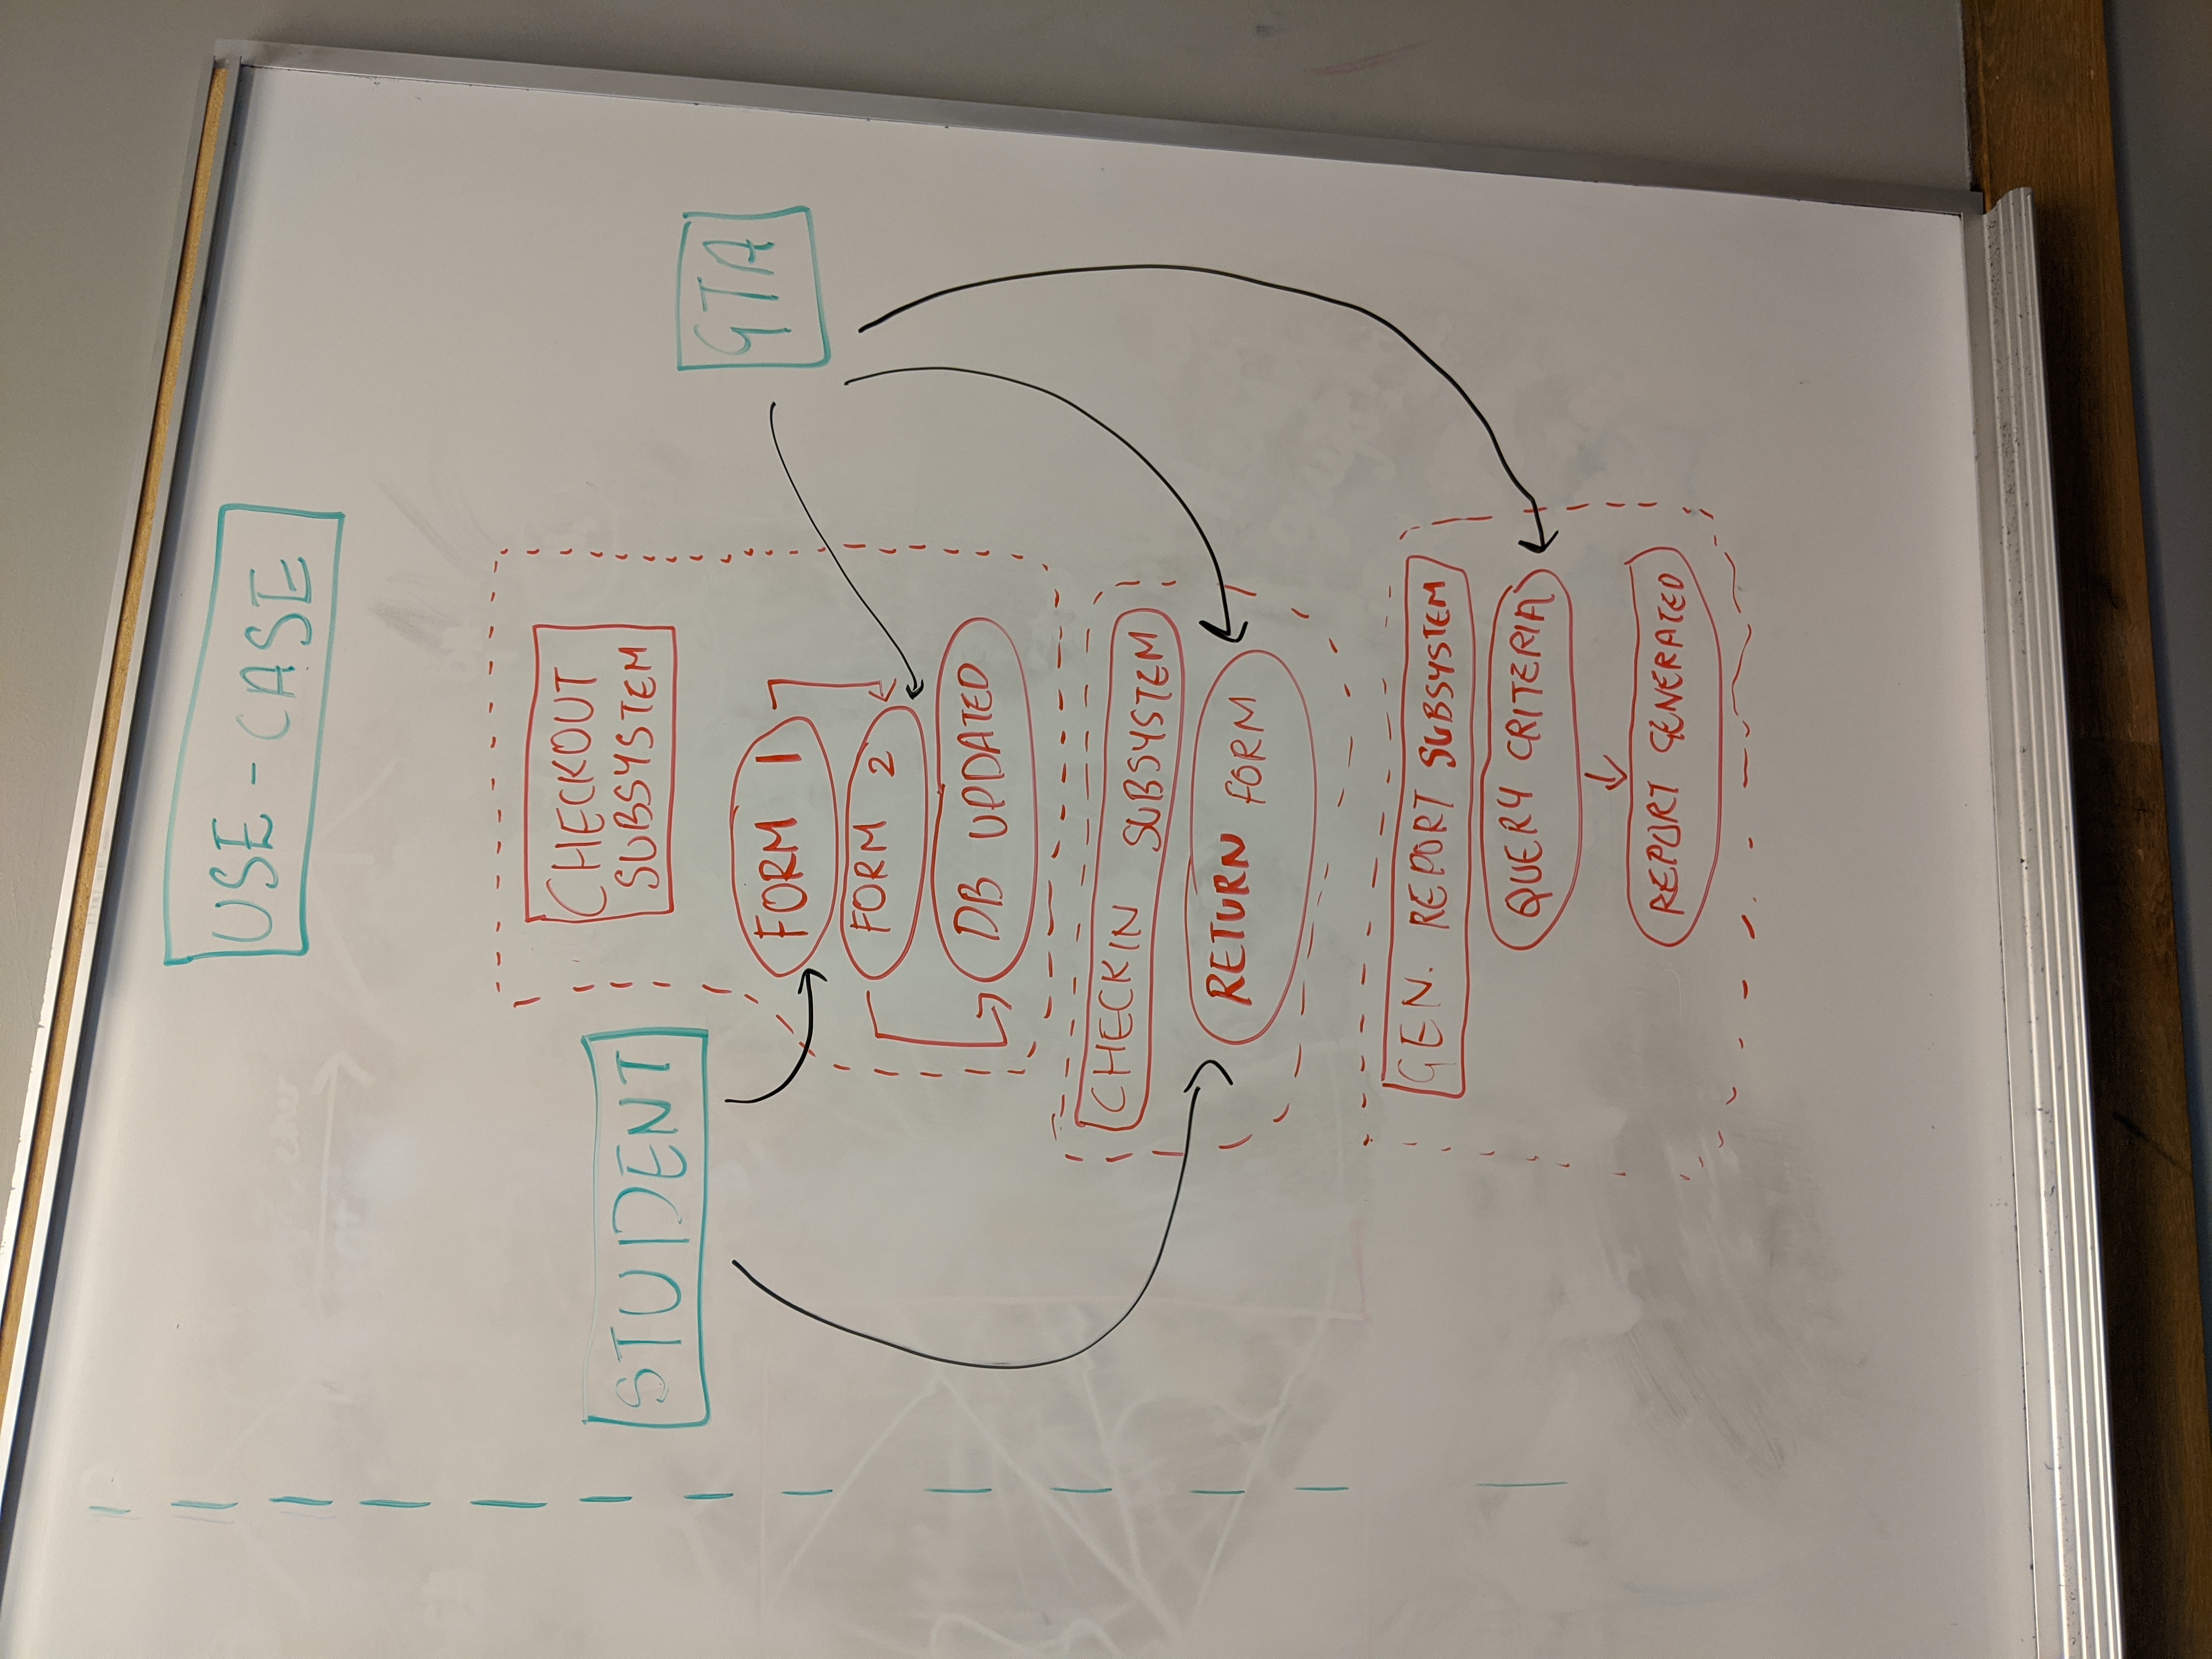 USE-CASE
CHECKOUT
SUBSYSTEM
STUDENT
GTA
FORM 1
FORM 2
DB UPDATED
CHECKIN SUBSYSTEM
RETURN FORM
GEN. REPORT SUBSYSTEM
QUERY CRITERIA
REPORT GENERATED